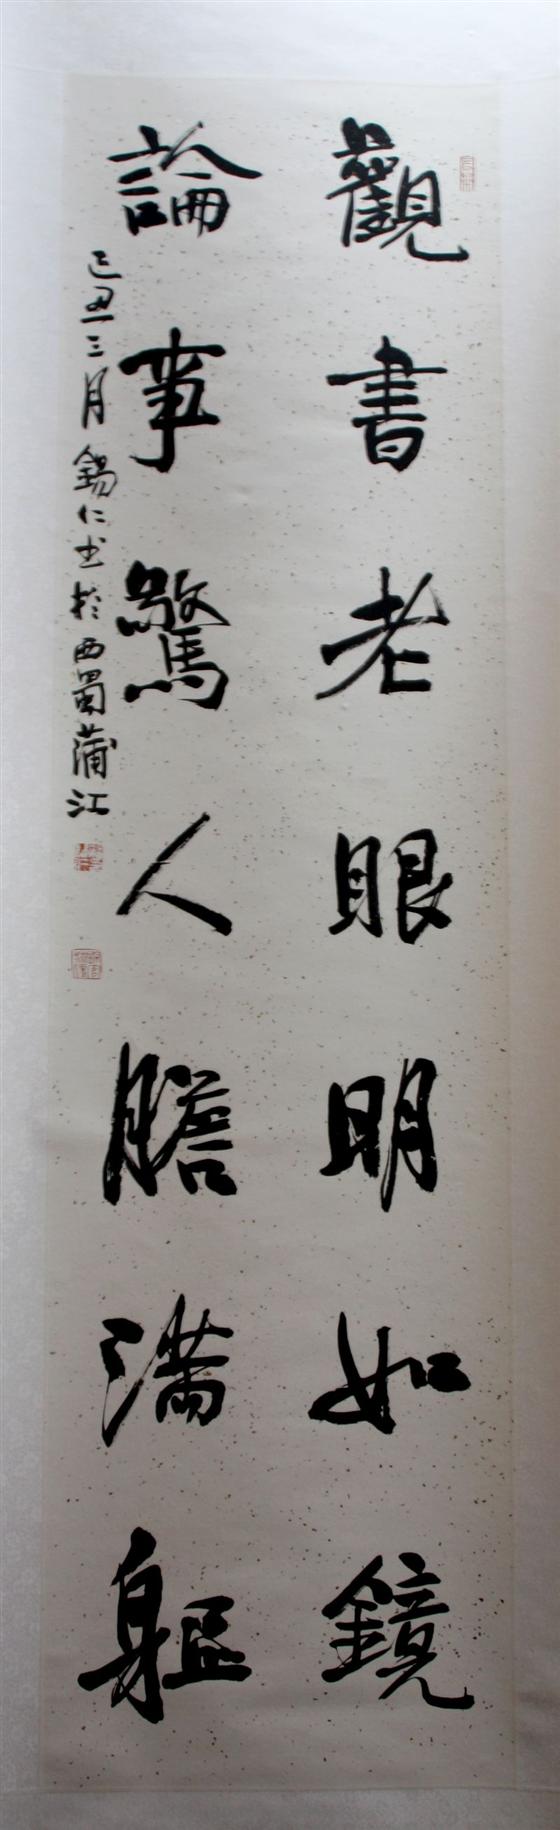 觀書老眼明如鏡
論事驚人膽滿軀
己丑三月錫仁书於西蜀蒲江